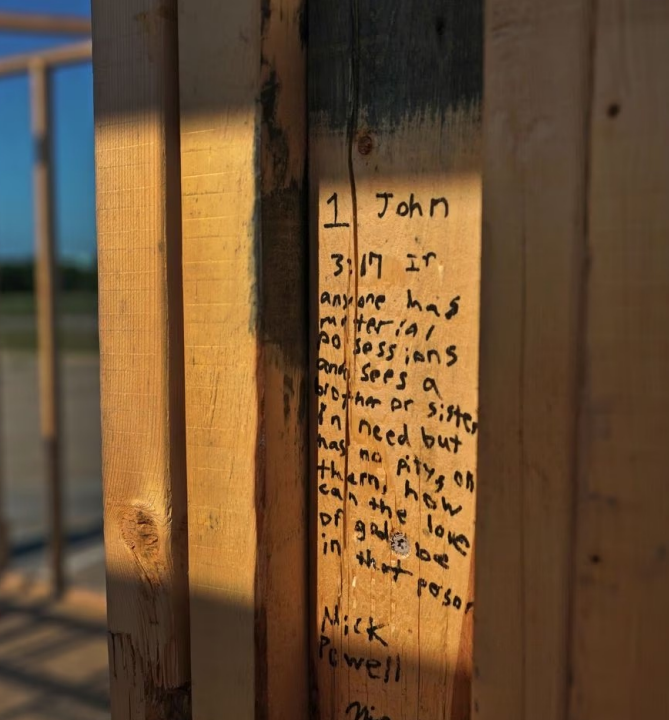 1 John
3:17 If
anyone has
material
possessions
and sees a
brother or sister
in need but
has no pitys on
them, how
can the love
of god be
in that peson
Nick
Powell